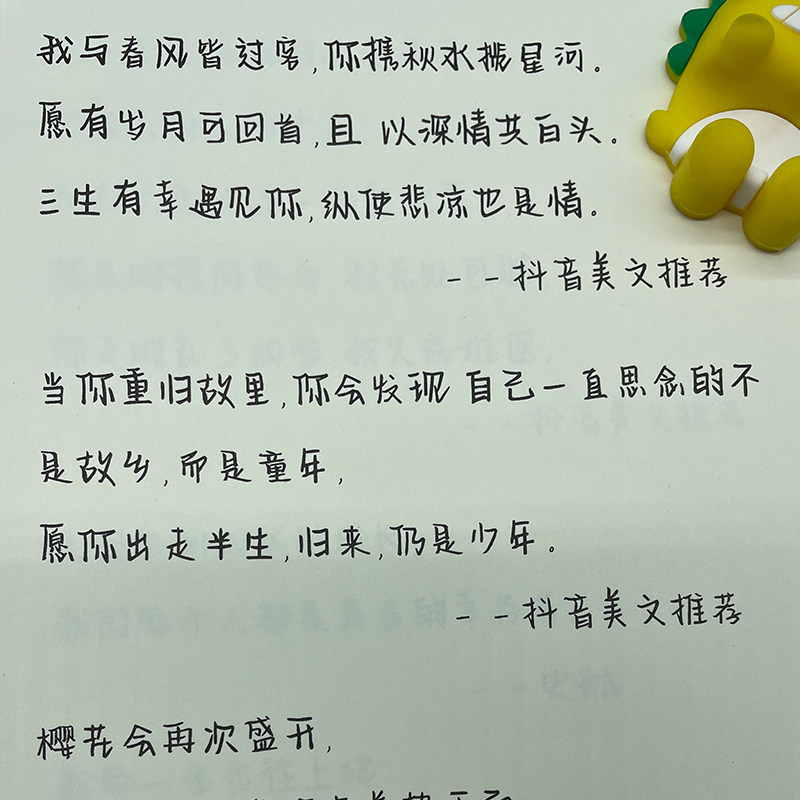 我与春风皆过客,你携秋水揽星河。
愿有岁月可回首,且以深情共白头。
三生有幸遇见你,纵使悲凉也是情。
--抖音美文推荐
当你重归故里,你会发现自己一直思念的不
是故乡,而是童年,
愿你出走半生,归来,仍是少年。
--抖音美文推荐
樱花会再次盛开,